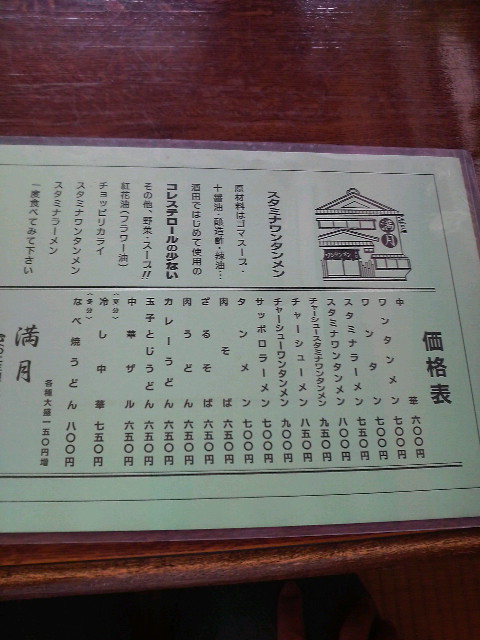 満月
ワンタンメン
価格表
中華 六〇〇円
ワンタンメン 七〇〇円
ワンタン 六五〇円
スタミナラーメン 七五〇円
スタミナワンタンメン 八〇〇円
チャーシュースタミナワンタンメン 九五〇円
チャーシューメン 八五〇円
チャーシューワンタンメン 九〇〇円
サッポロラーメン 七〇〇円
タンメン 七〇〇円
肉そば 六五〇円
ざるそば 六五〇円
肉うどん 六五〇円
カレーうどん 六五〇円
玉子とじうどん 六五〇円
中華ザル 六五〇円
(夏分)冷し中華 七五〇円
(冬分)なべ焼うどん 八〇〇円
各種大盛一五〇円増
満月
スタミナワンタンメン
原材料はゴマスープ・
十醤油・醸造酢・辣油…
酒田ではじめて使用の
コレステロールの少ない
その他、野菜・スープ!!
紅花油(フラワー油)
チョッピリカライ
スタミナワンタンメン
スタミナラーメン
一度食べてみて下さい